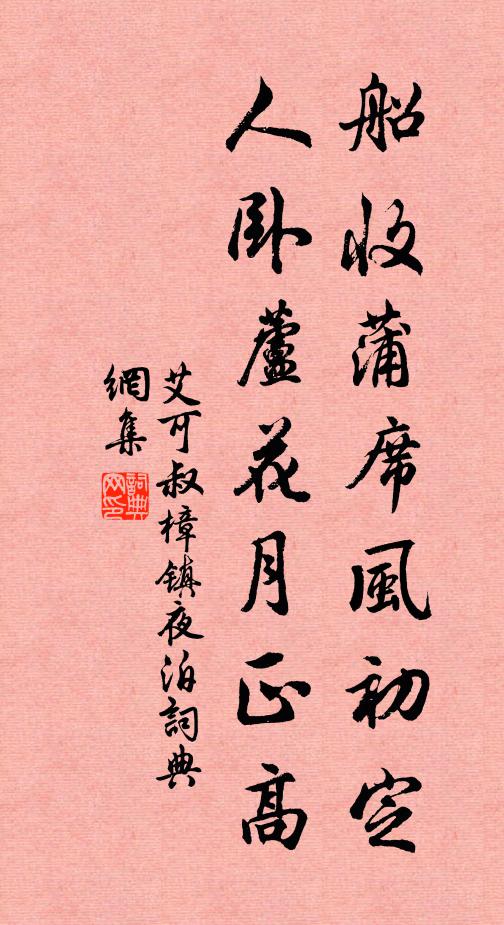 船收蒲席風初定
人卧蘆花月正高
艾可叔樟镇夜泊詞典
網集
詞典
网印